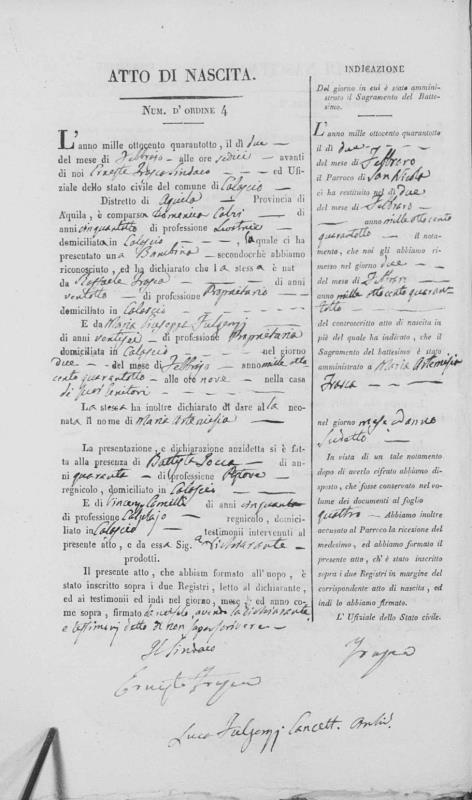 ATTO DI NASCITA.
NUM. D'ORDINE 4
L'anno mille ottocento quarantotto, il dì due
del mese di Febbrajo alle ore sedici avanti
di noi Ernesto Frasca Sindaco ed Uf-
fiziale dello stato civile del comune di Calascio
Distretto di Aquila Provincia di
Aquila, è comparsa Domenica
anni cinquantotto di professione Levatrice
domiciliata in Calascio, la quale ci ha
presentato una Bambina secondocchè abbiamo
riconosciuto, ed ha dichiarato che la stessa è nat
da Raffaele Frasca di anni
ventotto di professione Proprietario
domiciliato in Calascio
E da Maria Giuseppa Fulgenzj
di anni ventisei di professione Proprietaria
domiciliata in Calascio nel giorno
due del mese di Febbrajo anno mille otto
cento quarantotto alle ore nove nella casa
di suoi Genitori
La stessa ha inoltre dichiarato di dare alla neo-
nata il nome di Maria Artemisia
La presentazione, e dichiarazione anzidetta si è fat-
ta alla presenza di Battista di an-
ni quaranta di professione
regnicolo, domiciliato in Calascio
E di Vincenzo di anni cinquanta
di professione Calzolajo regnicolo, domici-
liato in Calascio testimonii intervenuti al
presente atto, e da essa Sig.a dichiarante
prodotti.
Il presente atto, che abbiam formato all'uopo, è
stato inscritto sopra i due Registri, letto al dichiarante,
ed ai testimonii ed indi nel giorno, mese di ed anno co-
me sopra, firmato da noi solo, avendo la dichiarante
e testimonj detto di non saper scrivere
Il Sindaco
Ernesto Frasca
Luca Fulgenzj Cancell. Archiv.
INDICAZIONE
Del giorno in cui è stato ammini-
strato il Sagramento del Batte-
simo.
L'anno mille ottocento quarantotto
il dì due
del mese di Febbraro
il Parroco di San Nicola
ci ha restituito nel dì due
del mese di Febbraro
anno mille ottocento
quarantotto il nota-
mento, che noi gli abbiamo ri-
messo nel giorno due
del mese di Febbraro
anno mille ottocento quaran-
totto
del controscritto atto di nascita in
piè del quale ha indicato, che il
Sagramento del battesimo è stato
amministrato a Maria Artemisia
Frasca
nel giorno mese ed anno
sudetto
In vista di un tale notamento
dopo di averlo cifrato abbiamo di-
sposto, che fosse conservato nel
volume dei documenti al foglio
quattro Abbiamo inoltre
accusato al Parroco la ricezione del
medesimo, ed abbiamo formato il
presente atto, ch'è stato inscritto
sopra i due Registri in margine del
corrispondente atto di nascita, ed
indi lo abbiamo firmato.
L'Ufiziale dello Stato civile.
Frasca